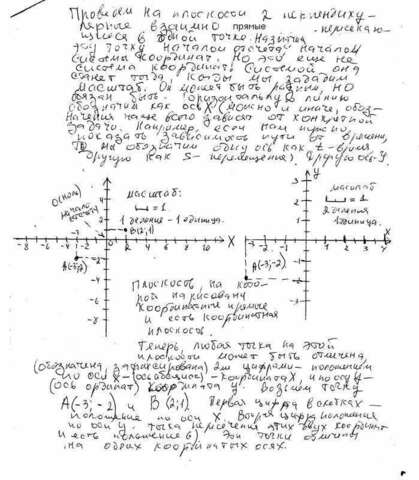 Проведем на плоскости 2 перпендику-
лярные взаимно прямые пересекаю-
щиеся в одной точке. Назовем
эту точку началом отсчета началом
системы координат. Но это еще не
система координат. Системой она
станет тогда, когда мы зададим
масштаб. Он может быть разным, но
должен быть. Горизонтальную линию
обозначим как ось X (можно и иначе, обоз-
начения чаще всего зависят от конкретной
задачи. Например, если нам нужно
показать зависимость пути от времени,
то мы обозначим одну ось как t - время
другую как S - перемещение). Другую ось - y
масштаб:
= 1
1 деление - 1 единица.
B(2;1)
A(-3;-2)
X
начало
-8 -6 -4 -2 2 4 6 8
y
масштаб
= 1
2 деления
1 единица.
A(-3;-2)
X
Плоскость, на кото-
рой нарисованы
координатные прямые
и есть координатная
плоскость.
Теперь, любая точка на этой
плоскости может быть отмечена
(обозначена, зафиксирована) 2мя цифрами - положением
по оси X - - координата X, и по оси y -
(ось ординат) координата y. Возьмем точку
A(-3;-2) и B(2;1) Первая цифра в скобках -
положение по оси X. Вторая цифра положение
по оси y. Точка пересечения этих двух координат
и есть положение Эти точки отмечены
на обоих координатных осях.